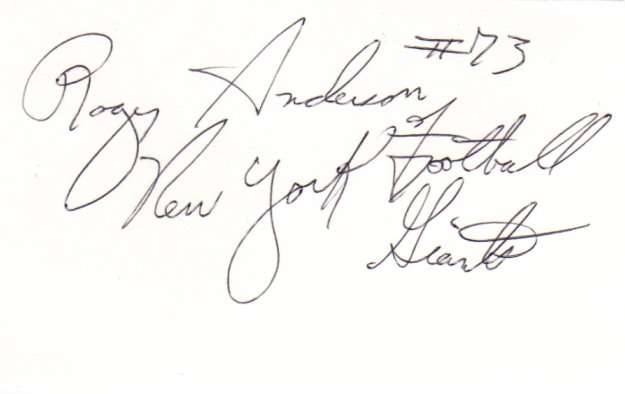 Roger Anderson #73
of
New York Football
Giants